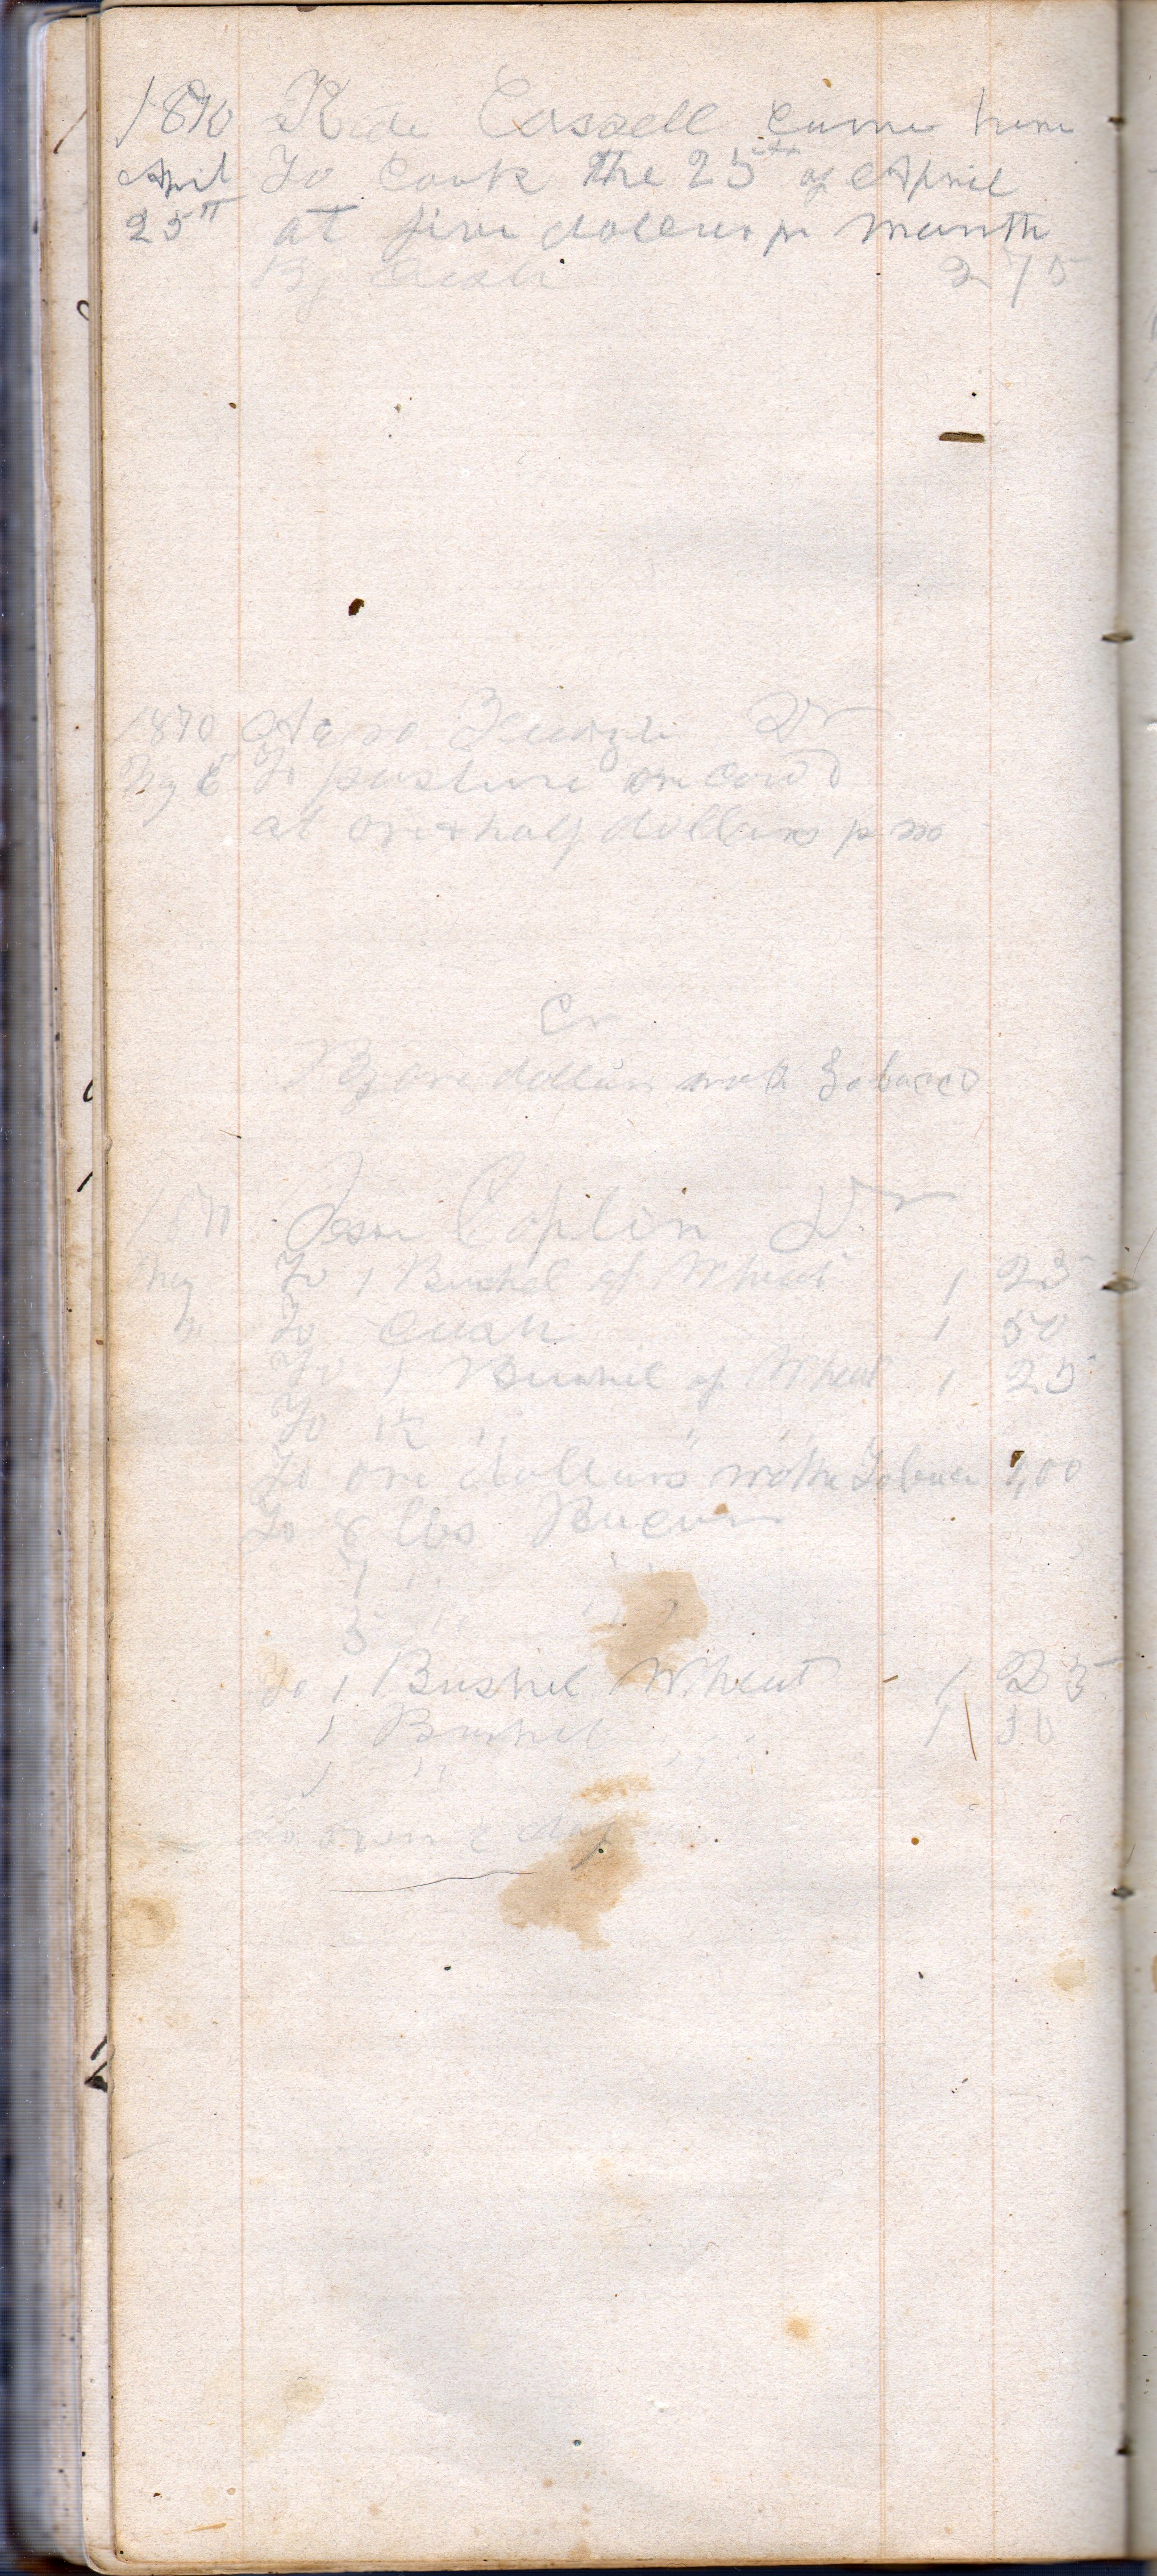 1870 Kide Cassell came here
April To Cook the 25th of April
25th at five dollars pr month
By Cash 2 75
1870 Dr
To pasture one cow
at one & half dollars p mo
Cr
By one dollars worth Tobacco
1870 Jesse Coplin Dr
May To 1 Bushel of Wheat 1 25
" To Cash 1 50
To 1 Bushel of Wheat 1 25
To 1½ " " "
To one dollars worth Tobacco 1,00
To 8 lbs Bacon
7 " "
5 " "
To 1 Bushel Wheat - 1 25
1 Bushel 1 30
1 " "